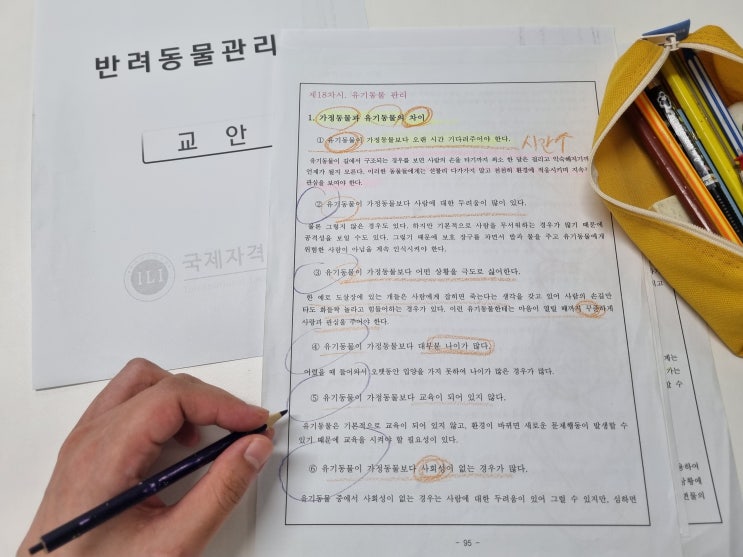 반려동물관리
교 안
ILI
국제자격
제18차시. 유기동물 관리
1. 가정동물과 유기동물의 차이
① 유기동물이 가정동물보다 오랜 시간 기다려주어야 한다.
시간
유기동물이 길에서 구조되는 경우를 보면 사람의 손을 타기까지 최소 한 달은 걸리고 익숙해지기까
언제가 될지 모른다. 이러한 동물들에게는 섣불리 다가가지 말고 천천히 환경에 적응시키며 지속
관심을 보여야 한다.
② 유기동물이 가정동물보다 사람에 대한 두려움이 많이 있다.
물론 그렇지 않은 경우도 있다. 하지만 기본적으로 사람을 무서워하는 경우가 많기 때문에
공격성을 보일 수도 있다. 그렇기 때문에 보호 장구를 차면서 밥과 물을 주고 유기동물에게
위험한 사람이 아님을 계속 인식시켜야 한다.
③ 유기동물이 가정동물보다 어떤 상황을 극도로 싫어한다.
한 예로 도살장에 있는 개들은 사람에게 잡히면 죽는다는 생각을 갖고 있어 사람의 손길만
타도 화들짝 놀라고 힘들어하는 경우가 있다. 이런 유기동물한테는 마음이 열릴 때까지 꾸준하게
사랑과 관심을 주어야 한다.
④ 유기동물이 가정동물보다 대부분 나이가 많다.
어렸을 때 들어와서 오랫동안 입양을 가지 못하여 나이가 많은 경우가 많다.
⑤ 유기동물이 가정동물보다 교육이 되어 있지 않다.
유기동물은 기본적으로 교육이 되어 있지 않고, 환경이 바뀌면 새로운 문제행동이 발생할 수
있기 때문에 교육을 시켜야 할 필요성이 있다.
⑥ 유기동물이 가정동물보다 사회성이 없는 경우가 많다.
유기동물 중에서 사회성이 없는 경우는 사람에 대한 두려움이 있어 그럴 수 있지만, 심하면
- 95 -